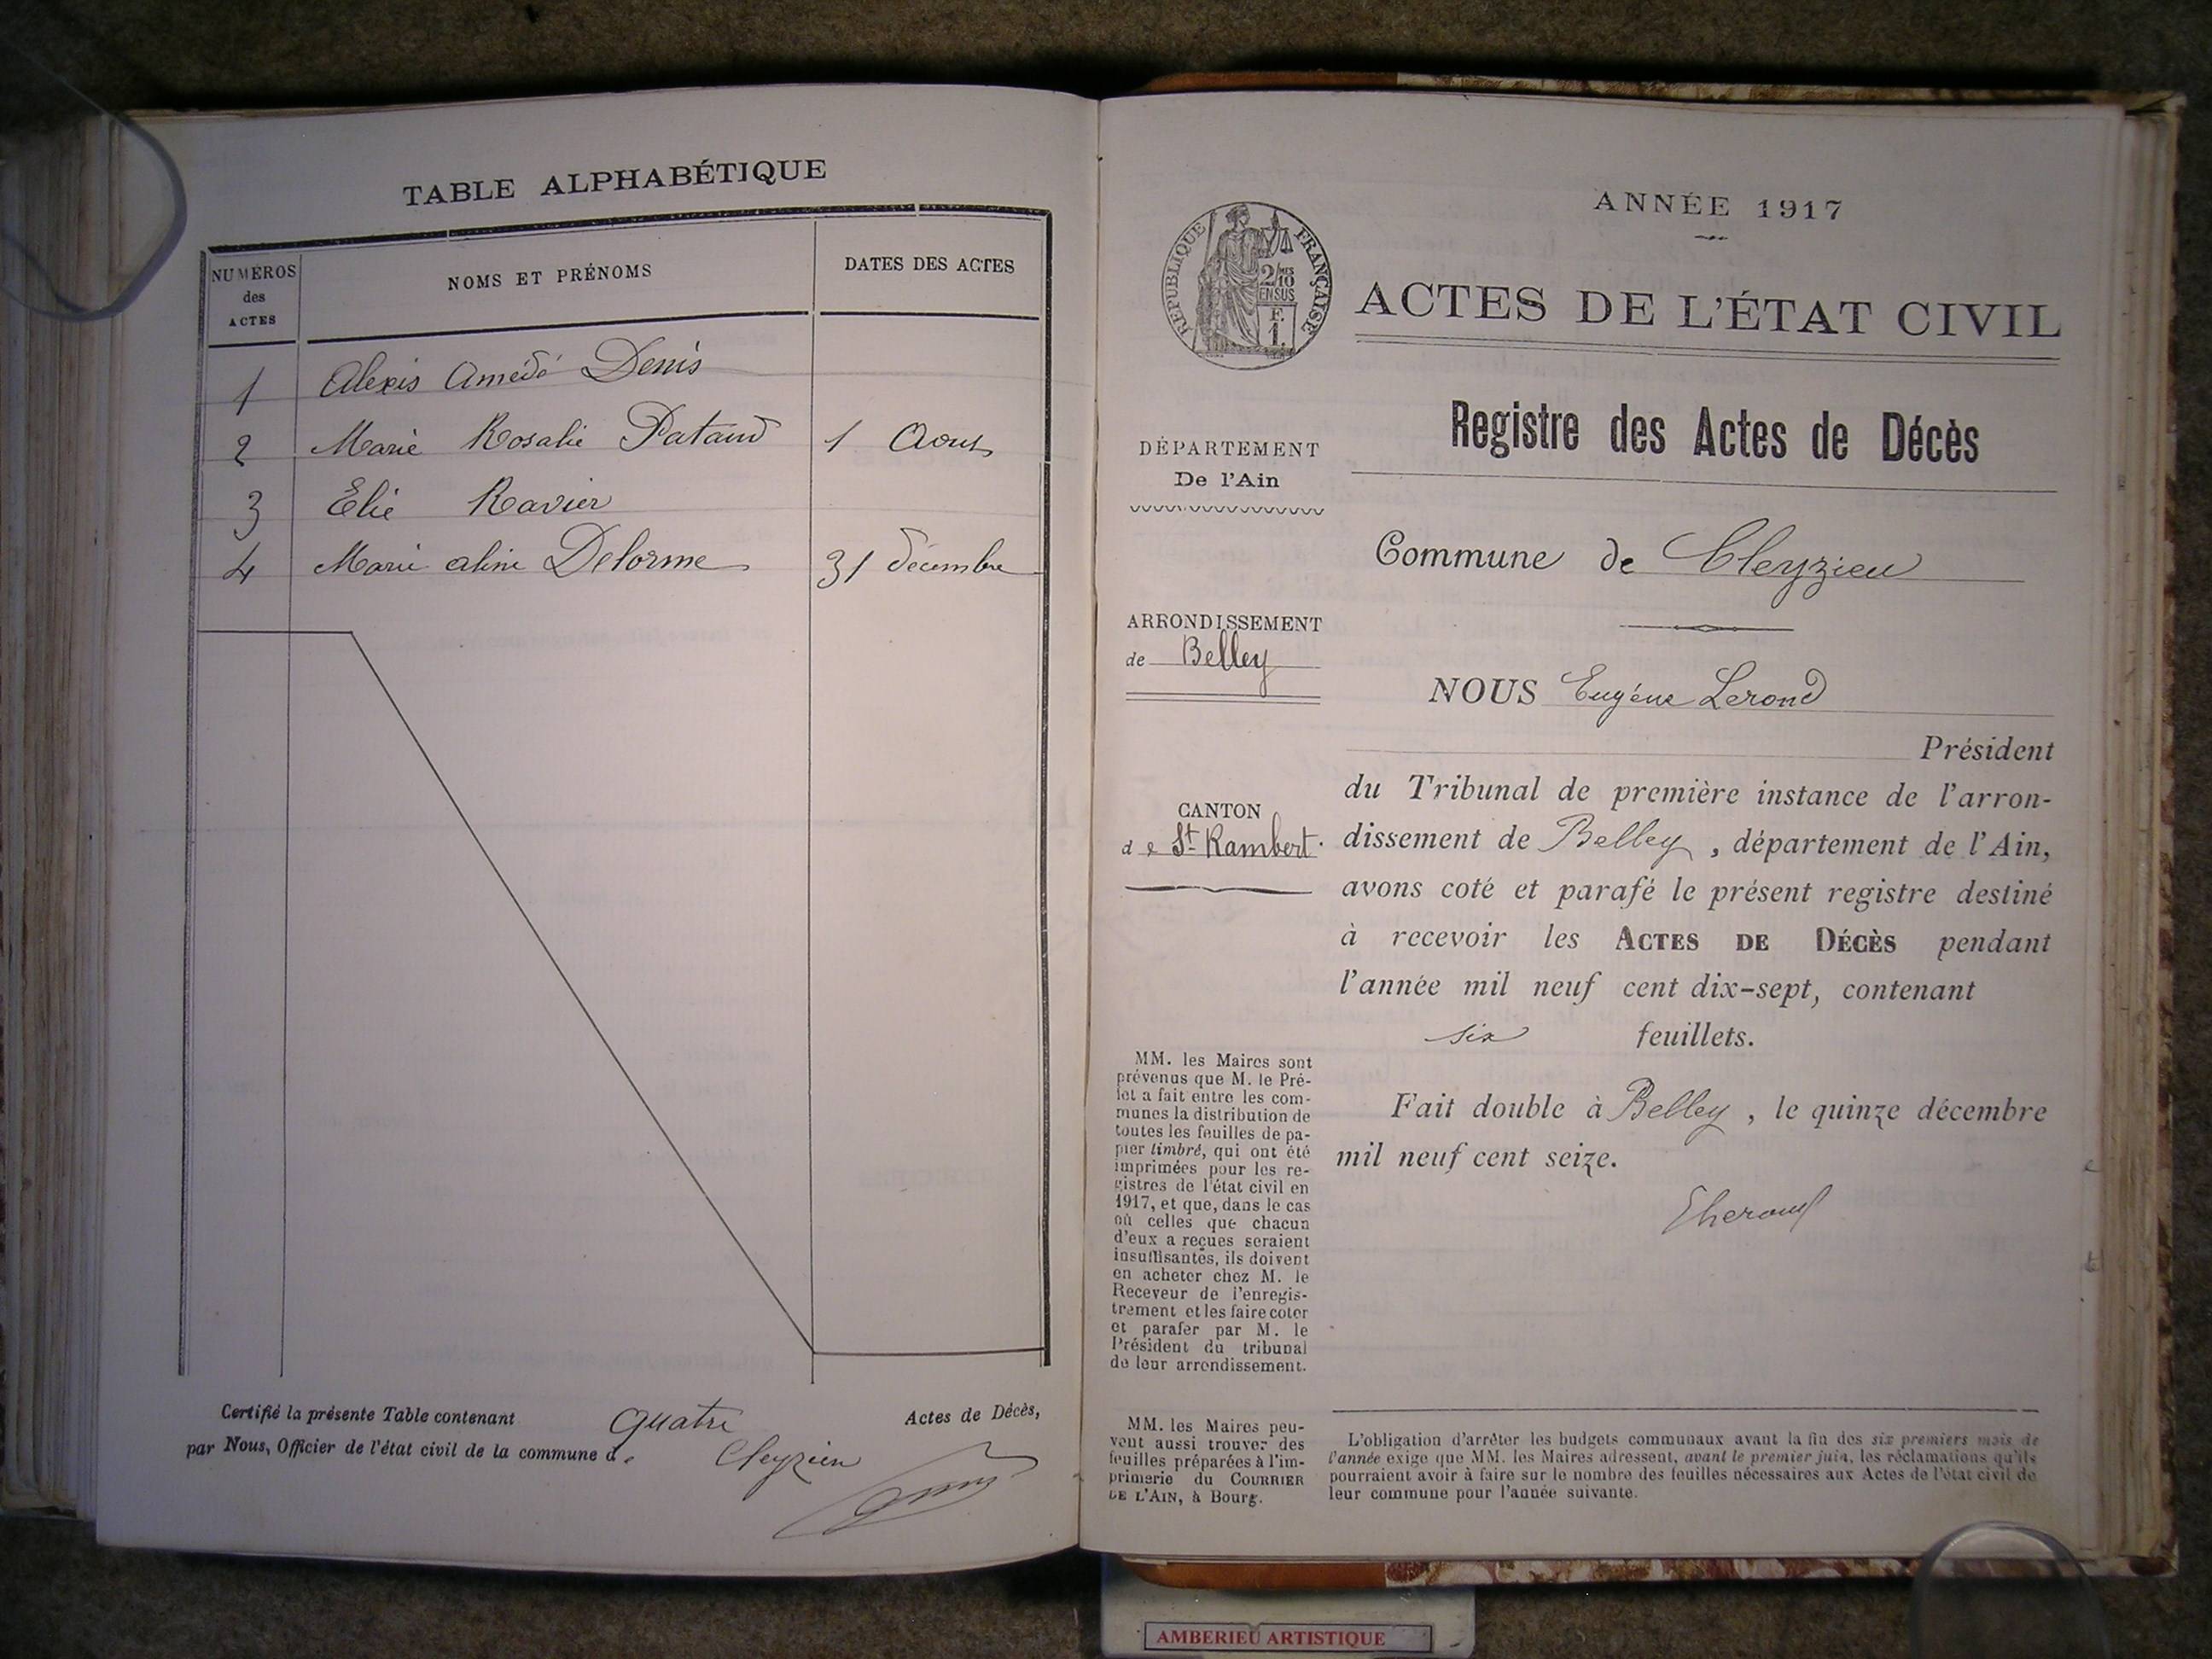 TABLE ALPHABÉTIQUE
NUMÉROS des ACTES
NOMS ET PRÉNOMS
DATES DES ACTES
1 Alexis Amédé Denis
2 Marie Rosalie Pataud 1 Aout
3 Elie Ravier
4 Marie aline Delorme 31 décembre
Certifié la présente Table contenant quatre Actes de Décès,
par Nous, Officier de l'état civil de la commune de Cleyzieu
ANNÉE 1917
RÉPUBLIQUE FRANÇAISE
2/10 MES
EN SUS
F.
1.
ACTES DE L'ÉTAT CIVIL
Registre des Actes de Décès
DÉPARTEMENT
De l'Ain
Commune de Cleyzieu
ARRONDISSEMENT
de Belley
NOUS Eugène Lerond
Président
du Tribunal de première instance de l'arron-
dissement de Belley, département de l'Ain,
avons coté et parafé le présent registre destiné
à recevoir les ACTES DE DÉCÈS pendant
l'année mil neuf cent dix-sept, contenant
six feuillets.
CANTON
de St Rambert.
Fait double à Belley, le quinze décembre
mil neuf cent seize.
MM. les Maires sont
prévenus que M. le Pré-
fet a fait entre les com-
munes la distribution de
toutes les feuilles de pa-
pier timbré, qui ont été
imprimées pour les re-
gistres de l'état civil en
1917, et que, dans le cas
où celles que chacun
d'eux a reçues seraient
insuffisantes, ils doivent
en acheter chez M. le
Receveur de l'enregis-
trement et les faire coter
et parafer par M. le
Président du tribunal
de leur arrondissement.
MM. les Maires peu-
vent aussi trouver des
feuilles préparées à l'im-
primerie du COURRIER
DE L'AIN, à Bourg.
L'obligation d'arrêter les budgets communaux avant la fin des six premiers mois de
l'année exige que MM. les Maires adressent, avant le premier juin, les réclamations qu'ils
pourraient avoir à faire sur le nombre des feuilles nécessaires aux Actes de l'état civil de
leur commune pour l'année suivante.
AMBERIEU ARTISTIQUE